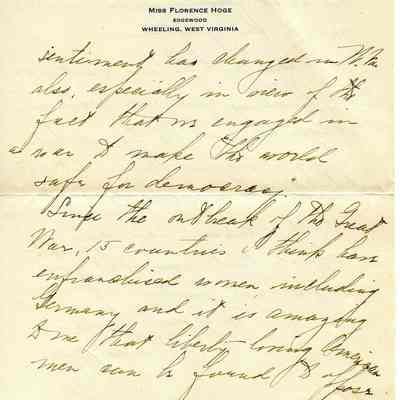 MISS FLORENCE HOGE
EDGEWOOD
WHEELING, WEST VIRGINIA
sentiment has changed in W. Va
also, especially in view of the
fact that we engaged in
a war to make the world
safe for democracy.
Since the outbreak of the Great
War, 15 countries I think have
enfranchised women including
Germany and it is amazing
to me that liberty loving American
men can be found to oppose